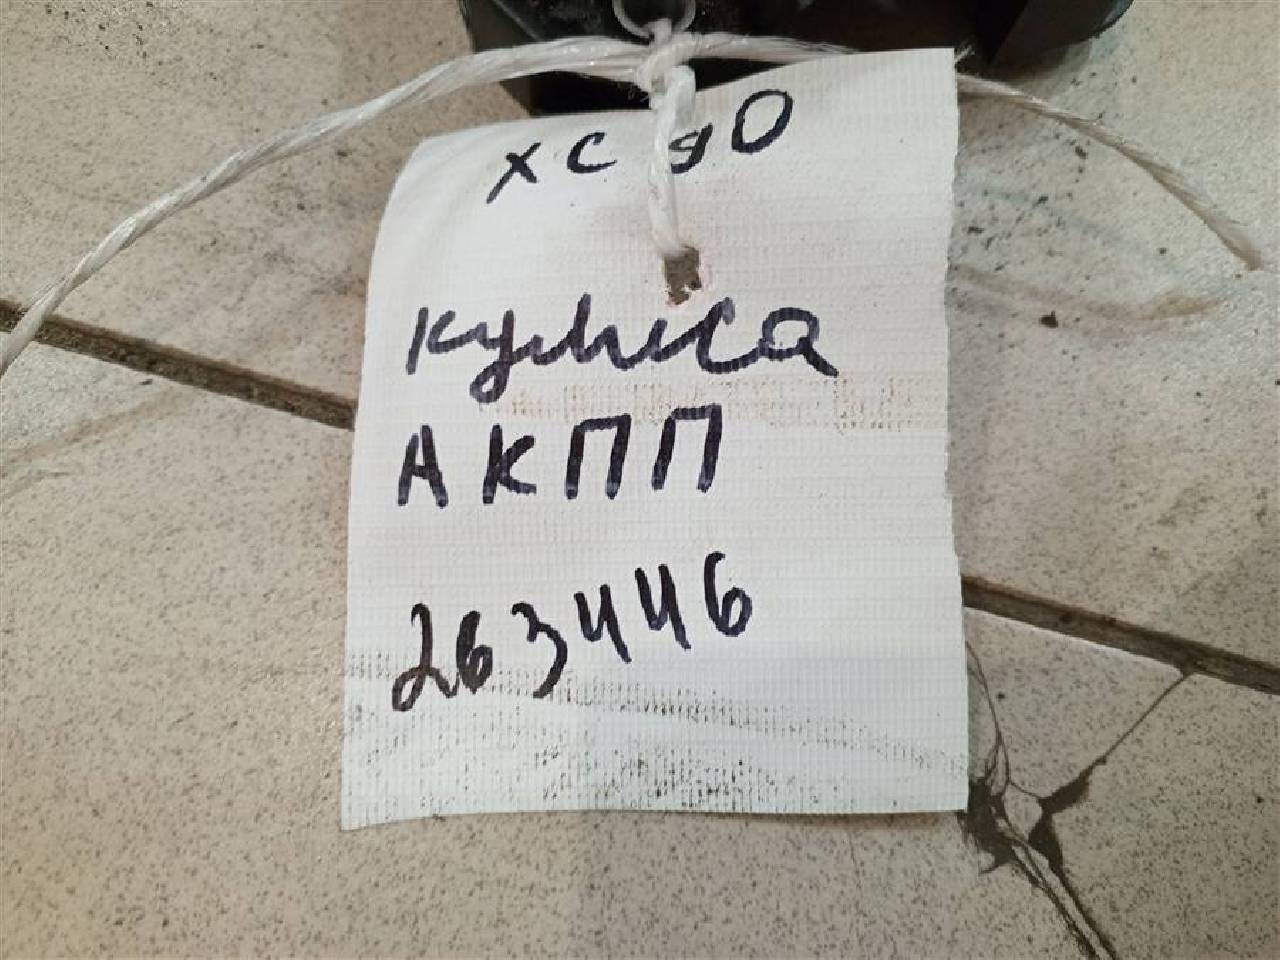 XC 90
кулиса
АКПП
263446